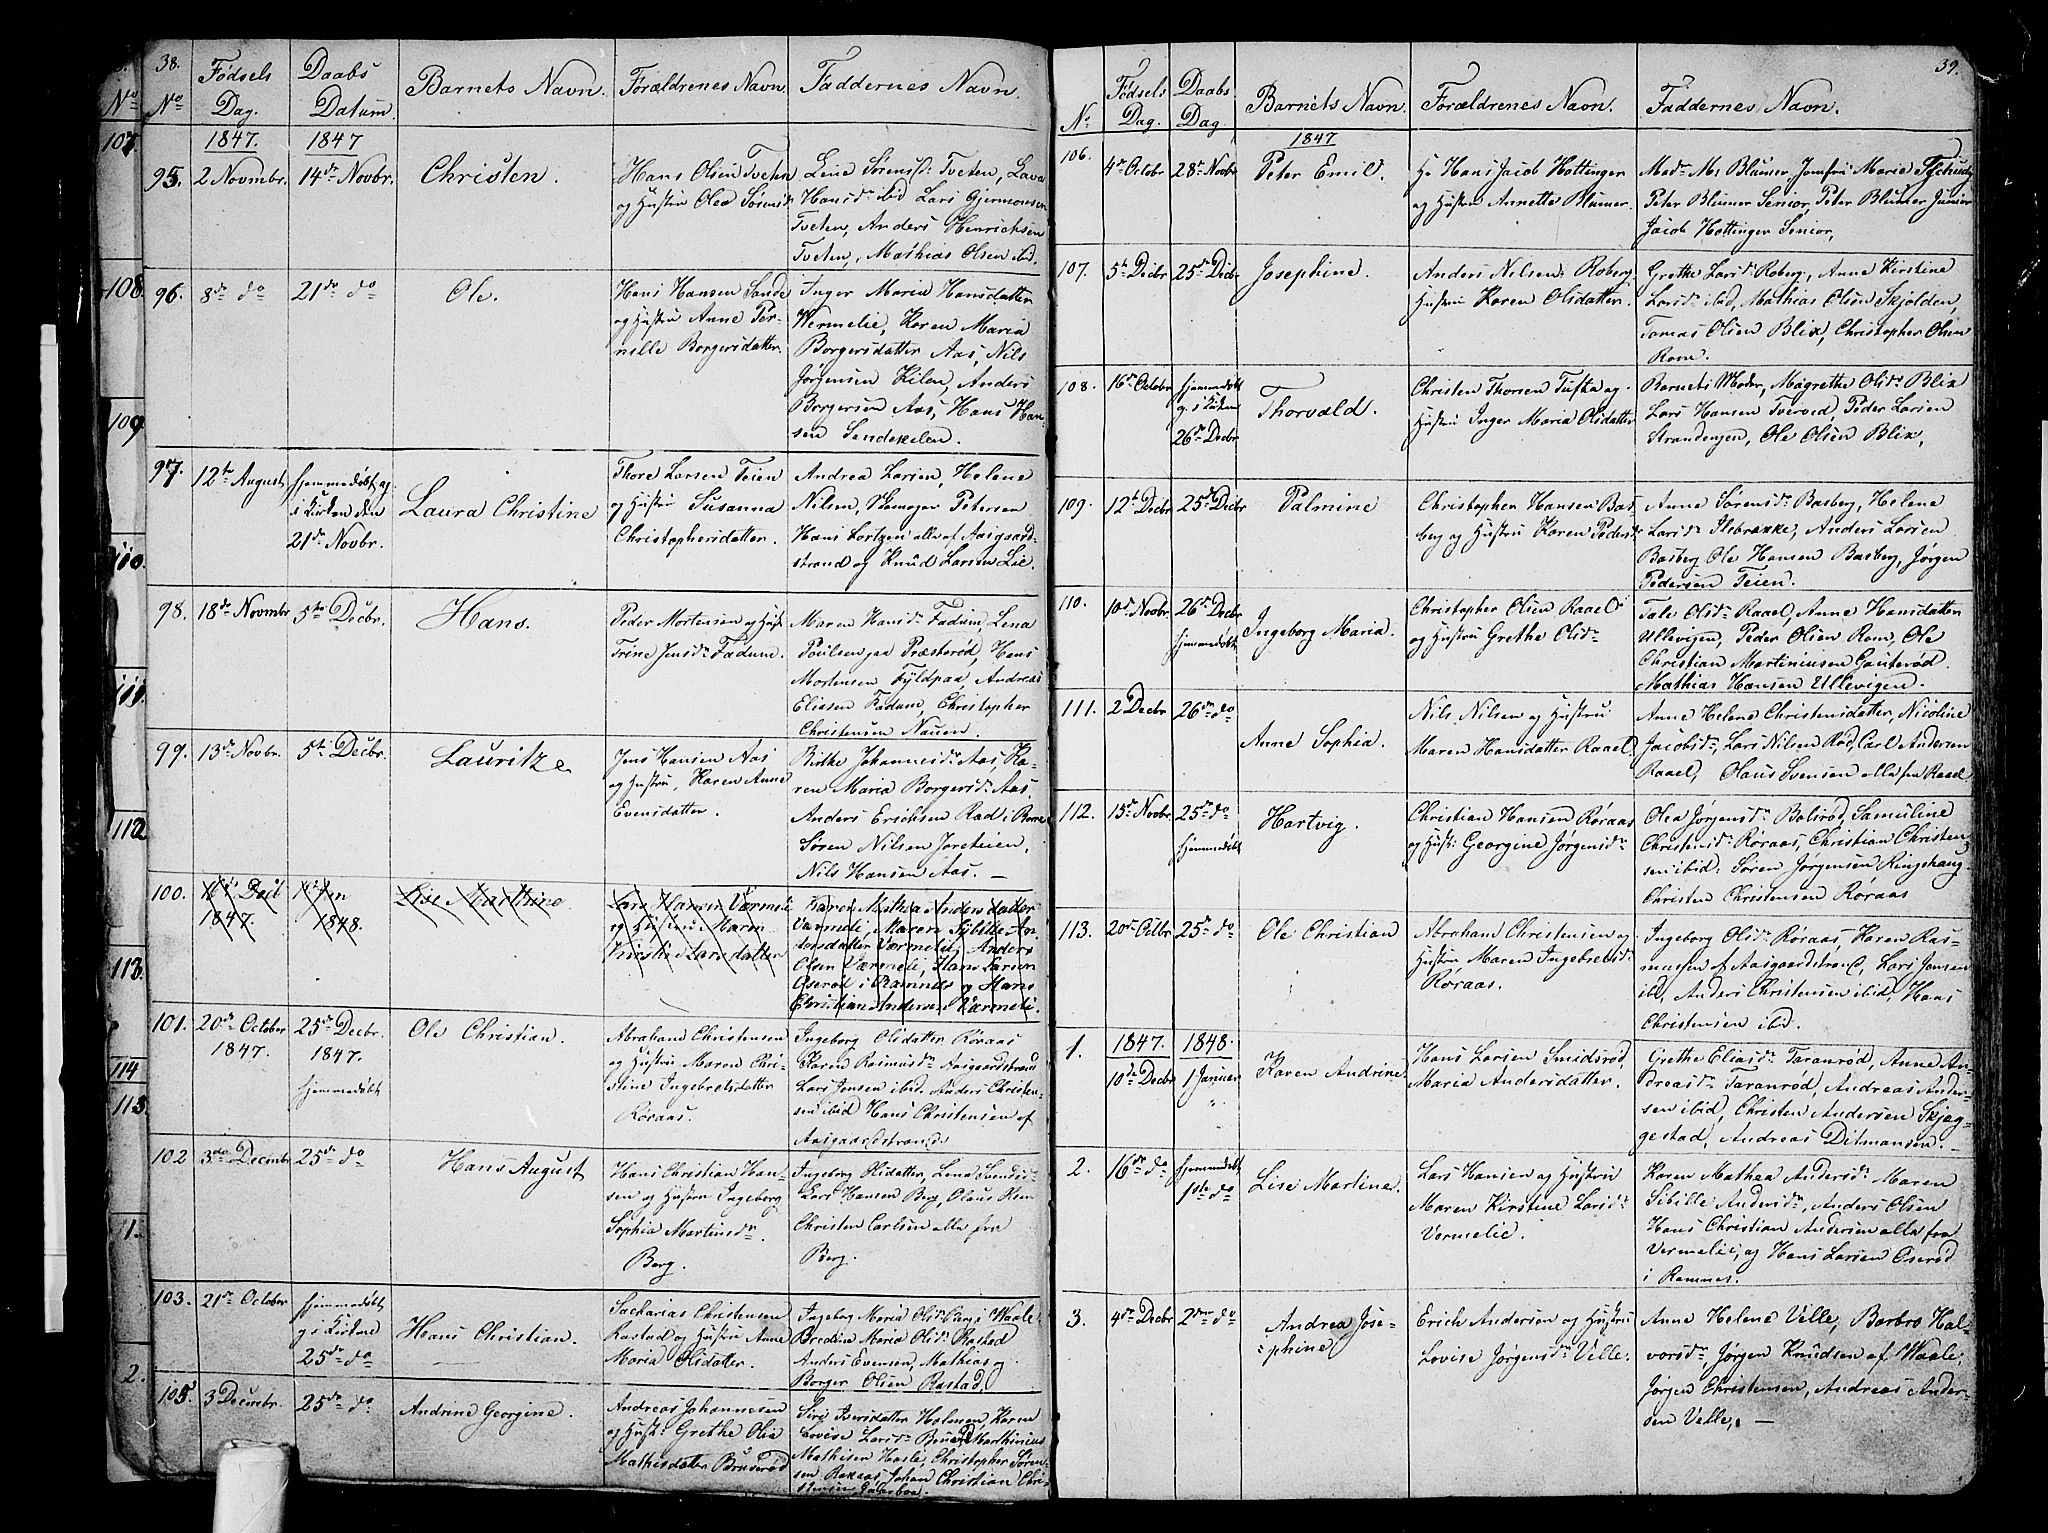 38.
No
Fødsels
Dag.
Daabs
Datum.
Barnets Navn.
Forældrenes Navn
Faddernes Navn.
1847.
1847
95.
2 Novmbr.
14de Novbr.
Christen.
Hans Olsen Tveten
og Hustru Olea Sørensd:
Lene Sørensd: Tveten, Lava
Hansd: ibid Lars Gjermonsen
Tveten, Anders Henrichsen
Tveten, Mathias Olsen ibid.
96.
8de do
21de do
Ole.
Hans Hansen Sande
og Hustru Anne Per-
nille Borgersdatter.
Inger Maria Hansdatter
Wermelie, Karen Maria
Borgersdatter Aas, Nils
Jørgensen Kilen, Anders
Borgersen Aas, Hans Han-
sen Sandekilen.
97.
12te August
hjemmedøbt og
i Kirken den
21de Novbr.
Laura Christine
Thore Larsen Teien
og Hustru Susanna
Christophersdatter.
Andrea Larsen, Helene
Nilsen, Petersen
Hans Lortzen alle af Aasgaard-
strand og Knud Larsen Lie.
98.
18de Novmbr
5te Decbr.
Hans.
Peder Mortensen og Hust:
Trine Jensdr Fadum.
Maren Hansdr Fadum, Lena
Poulsen paa Præsterød, Hans
Mortensen Fyldpaa Andreas
Eliasen Fadum, Christopher
Christensen Nauen.
99.
13de Novbr.
5te Decbr.
Lauritze
Jens Hansen Aas
og Hustru, Karen Anne
Evensdatter.
Birthe Johannesdr Aas, Ka-
ren Maria Borgersdr Aas.
Anders Erichsen Rad i Borre
Søren Nilsen Joreteien,
Nils Hansen Aas. —
100.
16de Decb
1847.
1 Jan
1848.
Lise Marthine
Lars Hansen Værmeli
og Hustru Maren
Kirstie Larsdatter
Karen Mathea Andersdatter
Værmeli, Maren Sybille An-
dersdatter Værmelie, Anders
Olsen Værmeli, Hans Larsen
Oserød i Ramnes og Hans
Christian Andersen Værmeli.
101.
20de October
1847.
25de Decbr.
1847.
hjemmedøbt
Ole Christian.
Abraham Christensen
og Hustru Maren Chri-
stine Ingebretsdatter
Røraas.
Ingeborg Olsdatter Røraas
Karen Rasmusdr Aasgaardstrand
Lars Jensen ibid. Anders Christen-
sen ibid Hans Christensen af
Aasgaardstrand.
102
3die Decmbr
25de do
Hans August
Hans Christian Han-
sen og Hustru Ingeborg
Sophia Martinsdr
Berg.
Ingeborg Olsdatter, Lena Svendsdr
Lars Hansen Berg, Olaus Olsen
Christen Carlsen alle fra
Berg.
103.
21de October
hjemmedøbt
og i Kirkene
25de do
Hans Christian.
Sacharias Christensen
Rastad og Hustru Anne
Maria Olsdatter.
Ingeborg Maria Olsdr Bergs Waale
Bredine Maria Olsdr Rastad
Anders Evensen, Mathias og
Borger Olsen Rastad,
105.
3 Decembr.
25de do
Andrine Georgine.
Andreas Johannesen
og Hustr: Grethe Olia
Mathisdatter Bruserød
Siri Iversdatter Holmen, Karen
Lovise Larsdr Marthinius
Mathisen Hasle, Christopher Søren-
sen Røraas Johan Christian Chri-
stensen
107.
108.
109.
110.
111.
112
113.
114
113.
1.
2.
39.
No
Fødsels
Dag.
Daabs
Dag.
Barnets Navn.
Forældrenes Navn.
Faddernes Navn.
1847
106.
4de Octobr
28de Novbr
Peter Emil.
Hr Hans Jacob Hottinger
og Hustru Annette Blumer.
Madm M: Blumer, Jomfru Maria Tschudy
Peter Blumer Senior, Peter Blumer Junior
Jacob Hottinger Senior,
107.
5te Decbr
25de Decbr
Josephine.
Anders Nilsen: Roberg
Hustru Karen Olsdatter.
Grethe Larsdr Roberg, Anne Kirstine
Larsdr ibid, Mathias Olsen Skjolden,
Tomas Olsen Blix, Christopher Olsen
Rom.
108.
16de Octobr
hjemmedøbt
og i Kirken
26de Decbr
Thorvald.
Christen Thorsen Tufta og
Hustru Inger Maria Olsdatter
Barnets Moder, Magrethe Olsdr Blix
Lars Hansen Tverved, Peder Larsen
Strandengen, Ole Olsen Blix,
109.
12te Decbr
25de Decbr
Palmine
Christopher Hansen Bas-
berg og Hustru Karen Pedersd:
Anne Sørensdr Basberg, Helene
Larsdr Ilebrække, Anders Larsen
Basberg Ole Hansen Basberg, Jørgen
Pedersen Teien.
110.
10de Novbr
26de Decbr
hjemmedøbt
Ingeborg Maria.
Christopher Olsen Raael
og Hustru Grethe Olsdr
Tale Olsdr Raael, Anne Hansdatter
Ullevigen, Peder Olsen Rom, Ole
Christian Martiniusen Gauterød.
Mathias Hansen Ullevigen.
111.
2 Decbr
26de do
Anne Sophia.
Nils Nilsen og Hustru
Maren Hansdatter Raael.
Anne Helene Christensdatter, Nicoline
Jacobsdr, Lars Nilsen Rød, Carl Andersen
Raael, Olaus Svensen alle fra Raael
112.
15de Novbr
25de do
hjemmedøbt
Hartvig.
Christian Hansen Røraas
og Hust: Georgine Jørgensdr
Olea Jørgensdr Bolsrød, Samuline
Christensdr Røraas, Christian Christen-
sen ibid: Søren Jørgensen Ringshaug
Christen Christensen Røraas
113.
20de Octbr
25de do
Ole Christian
Abraham Christensen og
Hustru Maren Ingebretsdr
Røraas.
Ingeborg Olsdr Røraas, Karen Ras-
mussen af Aasgaardstrand, Lars Jensen
ibd, Anders Christensen ibid: Hans
Christensen ibid.
1.
1847.
10de Decbr
1848.
1 Januar
"
Karen Andrine
Hans Larsen Smidsrød,
Maria Andersdatter.
Grethe Eliasdr Taranrød, Anne An-
dreasdr Taranrød, Andreas Ander-
sen ibid, Christen Andersen Skjeg-
gestad, Andreas Ditmansen. —
2.
16de do
hjemmedøbt
1ste do
Lise Martine.
Lars Hansen og Hustru
Maren Kirstine Larsdr
Vermelie.
Karen Mathea Andersdr Maren
Sibille Andersdr, Anders Olsen
Hans Christian Andersen alle fra
Vermelie, og Hans Larsen Oserød
i Ramnes.
3.
4de Decbr
2den do
Andrea Jose-
phine
Erich Andersen og Hustru
Lovise Jørgensdr Velle.
Anne Helene Velle, Barbro Hal-
vorsdr Jørgen Knudsen af Waale,
Jørgen Christensen, Andreas Ander-
sen Velle. —